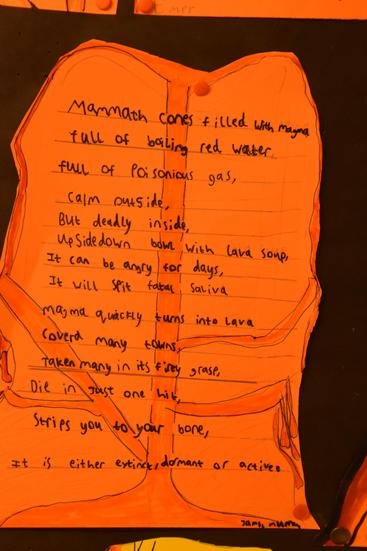 Mammath cones filled with magma
full of boiling red water,
full of Poisonious gas,
Calm outside,
But deadly inside,
Upsidedown bowl with lava soup,
It can be angry for days,
It will spit fatal saliva
magma quickly turns into lava
Coverd many towns,
Taken many in its firey grasp,
Die in Just one hit,
Strips you to your bone,
It is either extinct, dormant or active.
James